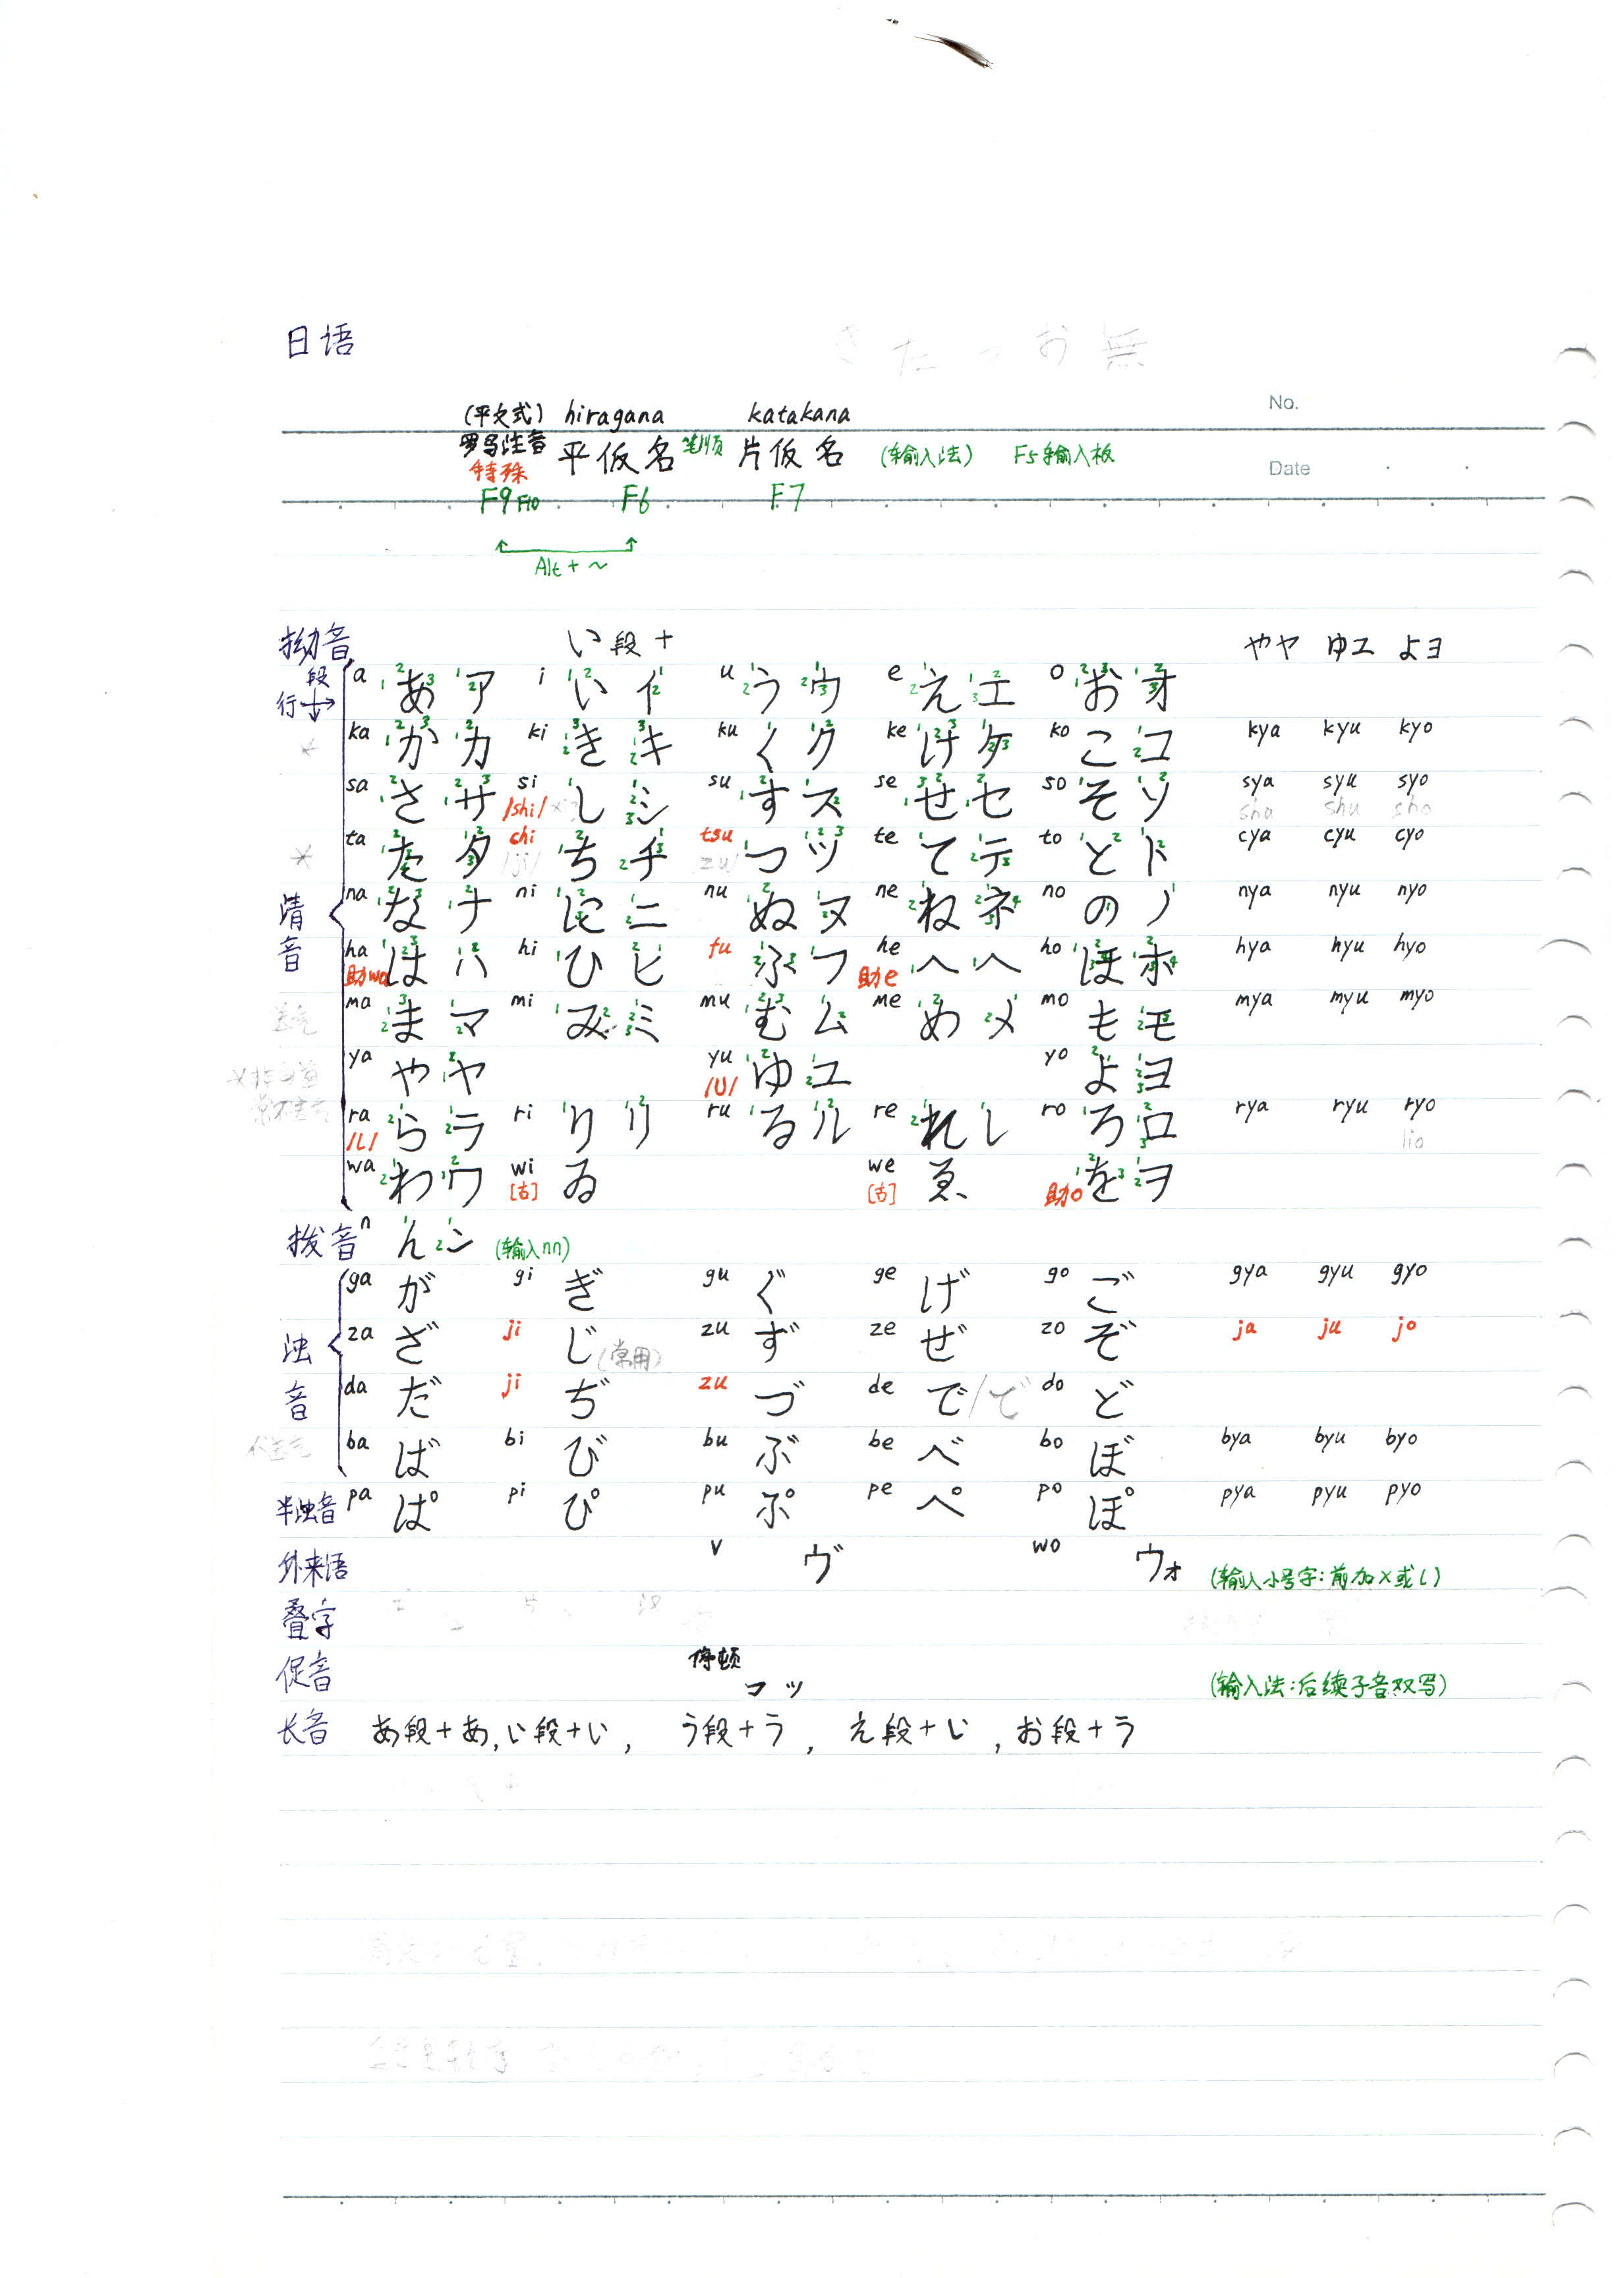 日语
No.
(平文式) hiragana katakana
罗马注音 平仮名 笔顺 片仮名 (输入法) F5输入板
特殊
Date
F9 F10 F6 F7
Alt + ~
拗音 い段+ やヤ ゆユ よヨ
段
行
a あ ア i い イ u う ウ e え エ o お オ
ka か カ ki き キ ku く ク ke け ケ ko こ コ kya kyu kyo
sa さ サ si /shi/ し シ su す ス se せ セ so そ ソ sya syu syo
sha shu sho
ta た タ chi /ji/ ち チ tsu zu つ ツ te て テ to と ト cya cyu cyo
清音
na な ナ ni に ニ nu ぬ ヌ ne ね ネ no の ノ nya nyu nyo
ha 助wa は ハ hi ひ ヒ fu ふ フ he 助e へ ヘ ho ほ ホ hya hyu hyo
送气
ma ま マ mi み ミ mu む ム me め メ mo も モ mya myu myo
ya や ヤ yu /U/ ゆ ユ yo よ ヨ
ra /L/ ら ラ ri り リ ru る ル re れ レ ro ろ ロ rya ryu ryo
lio
wa わ ワ wi [古] ゐ we [古] ゑ 助o を ヲ
拨音 n ん ン (输入nn)
浊音
ga が gi ぎ gu ぐ ge げ go ご gya gyu gyo
za ざ ji じ (常用) zu ず ze ぜ zo ぞ ja ju jo
da だ ji ぢ zu づ de で/で do ど
不送气
ba ば bi び bu ぶ be べ bo ぼ bya byu byo
半浊音 pa ぱ pi ぴ pu ぷ pe ぺ po ぽ pya pyu pyo
外来语 v ヴ wo ウォ (输入小号字:前加x或l)
叠字
促音 停顿 コッ (输入法:后续子音双写)
长音 あ段+あ,い段+い, う段+う, え段+い, お段+う